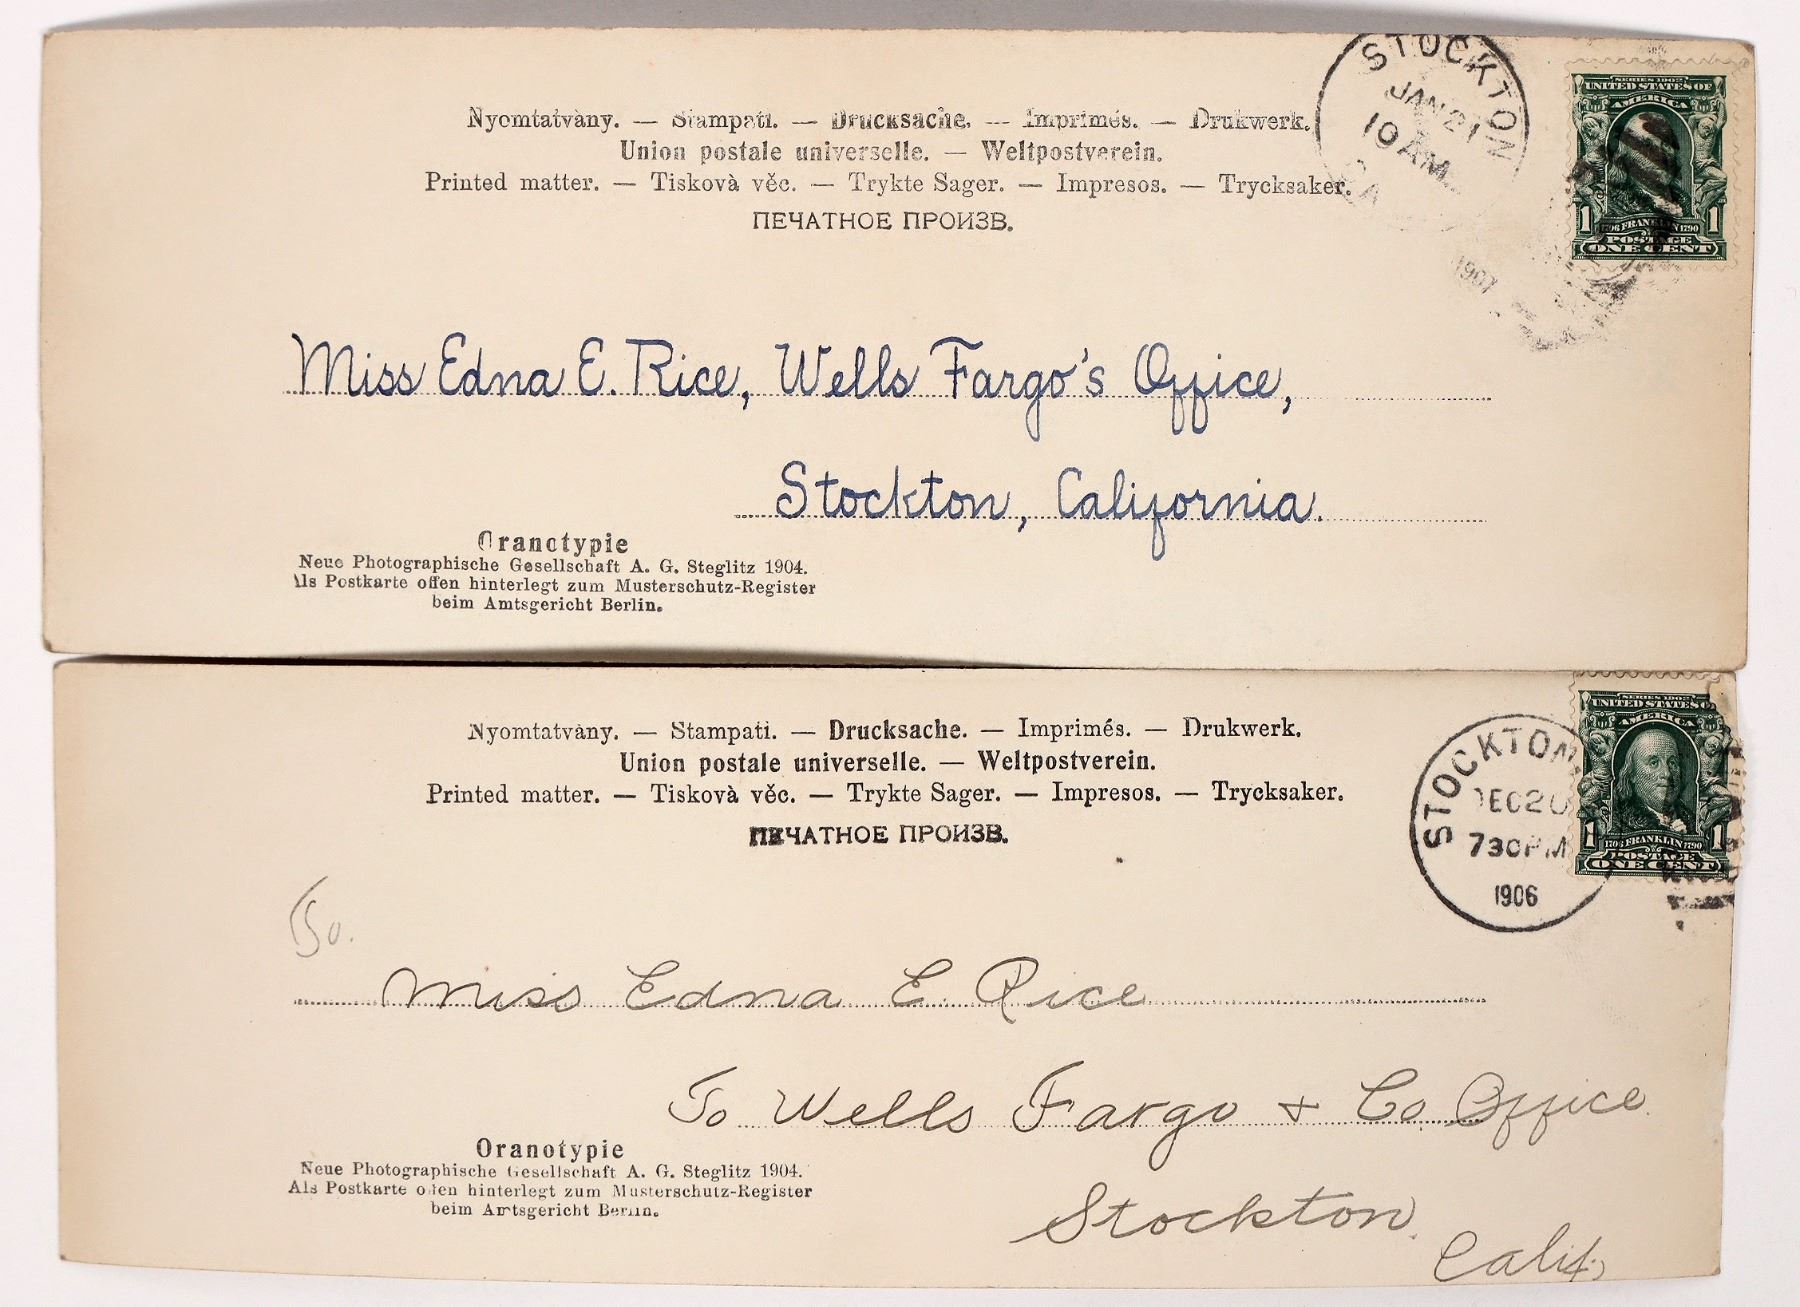 Nyomtatvàny. — Stampati. — Drucksache. — Imprimés. — Drukwerk.
Union postale universelle. — Weltpostverein.
Printed matter. — Tiskovà věc. — Trykte Sager. — Impresos. — Trycksaker.
ПЕЧАТНОЕ ПРОИЗВ.
STOCKTON
JAN 21
10 AM
CA
1907
SERIES 1902
UNITED STATES OF
AMERICA
1 1
1706 FRANKLIN 1790
POSTAGE
ONE CENT
Miss Edna E. Rice, Wells Fargo's Office,
Stockton, California.
Oranotypie
Neue Photographische Gesellschaft A. G. Steglitz 1904.
Als Postkarte offen hinterlegt zum Musterschutz-Register
beim Amtsgericht Berlin.
Nyomtatvàny. — Stampati. — Drucksache. — Imprimés. — Drukwerk.
Union postale universelle. — Weltpostverein.
Printed matter. — Tiskovà věc. — Trykte Sager. — Impresos. — Trycksaker.
ПЕЧАТНОЕ ПРОИЗВ.
STOCKTON
DEC 20
730 PM
1906
SERIES 1902
UNITED STATES OF
AMERICA
1 1
1706 FRANKLIN 1790
POSTAGE
ONE CENT
Miss Edna E. Rice
To Wells Fargo & Co. Office
Stockton,
Calif,
Oranotypie
Neue Photographische Gesellschaft A. G. Steglitz 1904.
Als Postkarte offen hinterlegt zum Musterschutz-Register
beim Amtsgericht Berlin.